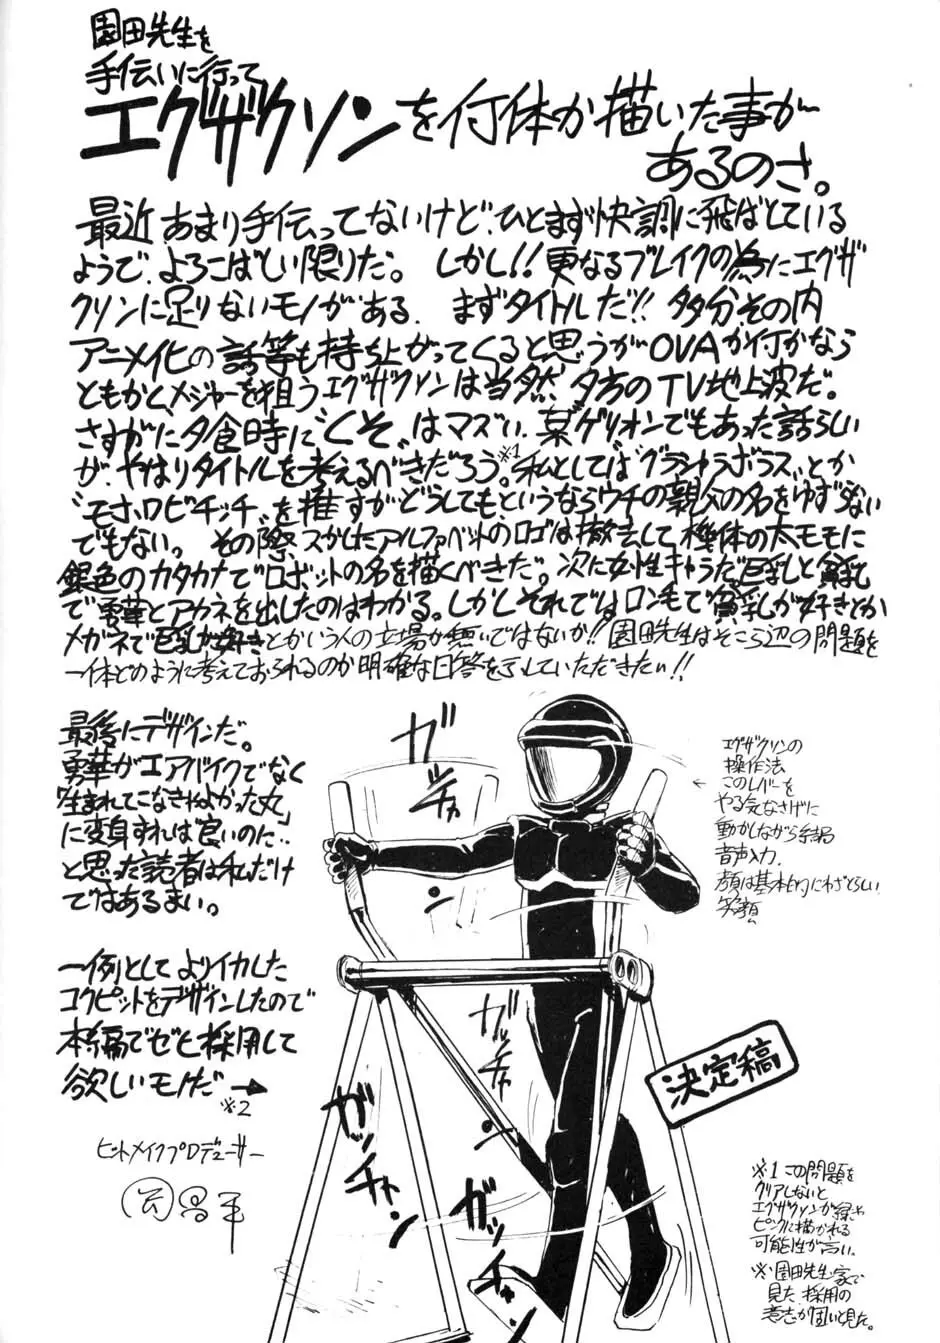 園田先生を
手伝いに行って
エグザクソンを何体か描いた事が
あるのさ。
最近あまり手伝ってないけど、ひとまず快調に飛ばしている
ようで、よろこばしい限りだ。しかし!!更なるブレイクの為にエグザ
クソンに足りないモノがある。まずタイトルだ!!多分その内
アニメイヒの話等も持ち上がってくると思うがOVAか何かなら
ともかくメジャーを狙うエグザクソンは当然夕方のTV地上波だ。
さすがに夕食時に"くそ"はマズい。某ゲリオンでもあった話らしい
が、やはりタイトルを考えるべきだろう。※1私としては"グラシャラボラス"とか
"モホロビチッチ"を推すがどうしてもというならウチの親父の名をゆずらない
でもない。その際スかしたアルファベットのロゴは撤去して機体の太モモに
銀色のカタカナでロボットの名を描くべきだ。次に女性キャラだ巨乳と貧乳
で勇華とアカネを出したのはわかる。しかしそれではロン毛で貧乳が好きとか
メガネで巨乳が好きとかいう人の立場が無いではないか!!園田先生はそこら辺の問題を
一体どのように考えておられるのか明確な回答を示していただきたい!!
最後にデザインだ。
勇華がエアバイクでなく
「生まれてこなきゃよかった丸」
に変身すれば良いのに…
と思った読者は私だけ
ではあるまい。
一例としてよりイカした
コクピットをデザインしたので
本編でゼヒ採用して
欲しいモノだ→
※2
ヒットメイクプロデューサー
ガチャン
ガッチャン
ガッチャン
ガッチャン
エグザクソンの
操作法
←このレバーを
やる気なさげに
動かしながら
音声入力
顔は基本的にわざとらしい
笑顔
決定稿
※1この問題を
クリアしないと
エグザクソンが緑や
ピンクに描かれる
可能性が高い。
※園田先生家で
見た。採用の
意志が固いと見た。